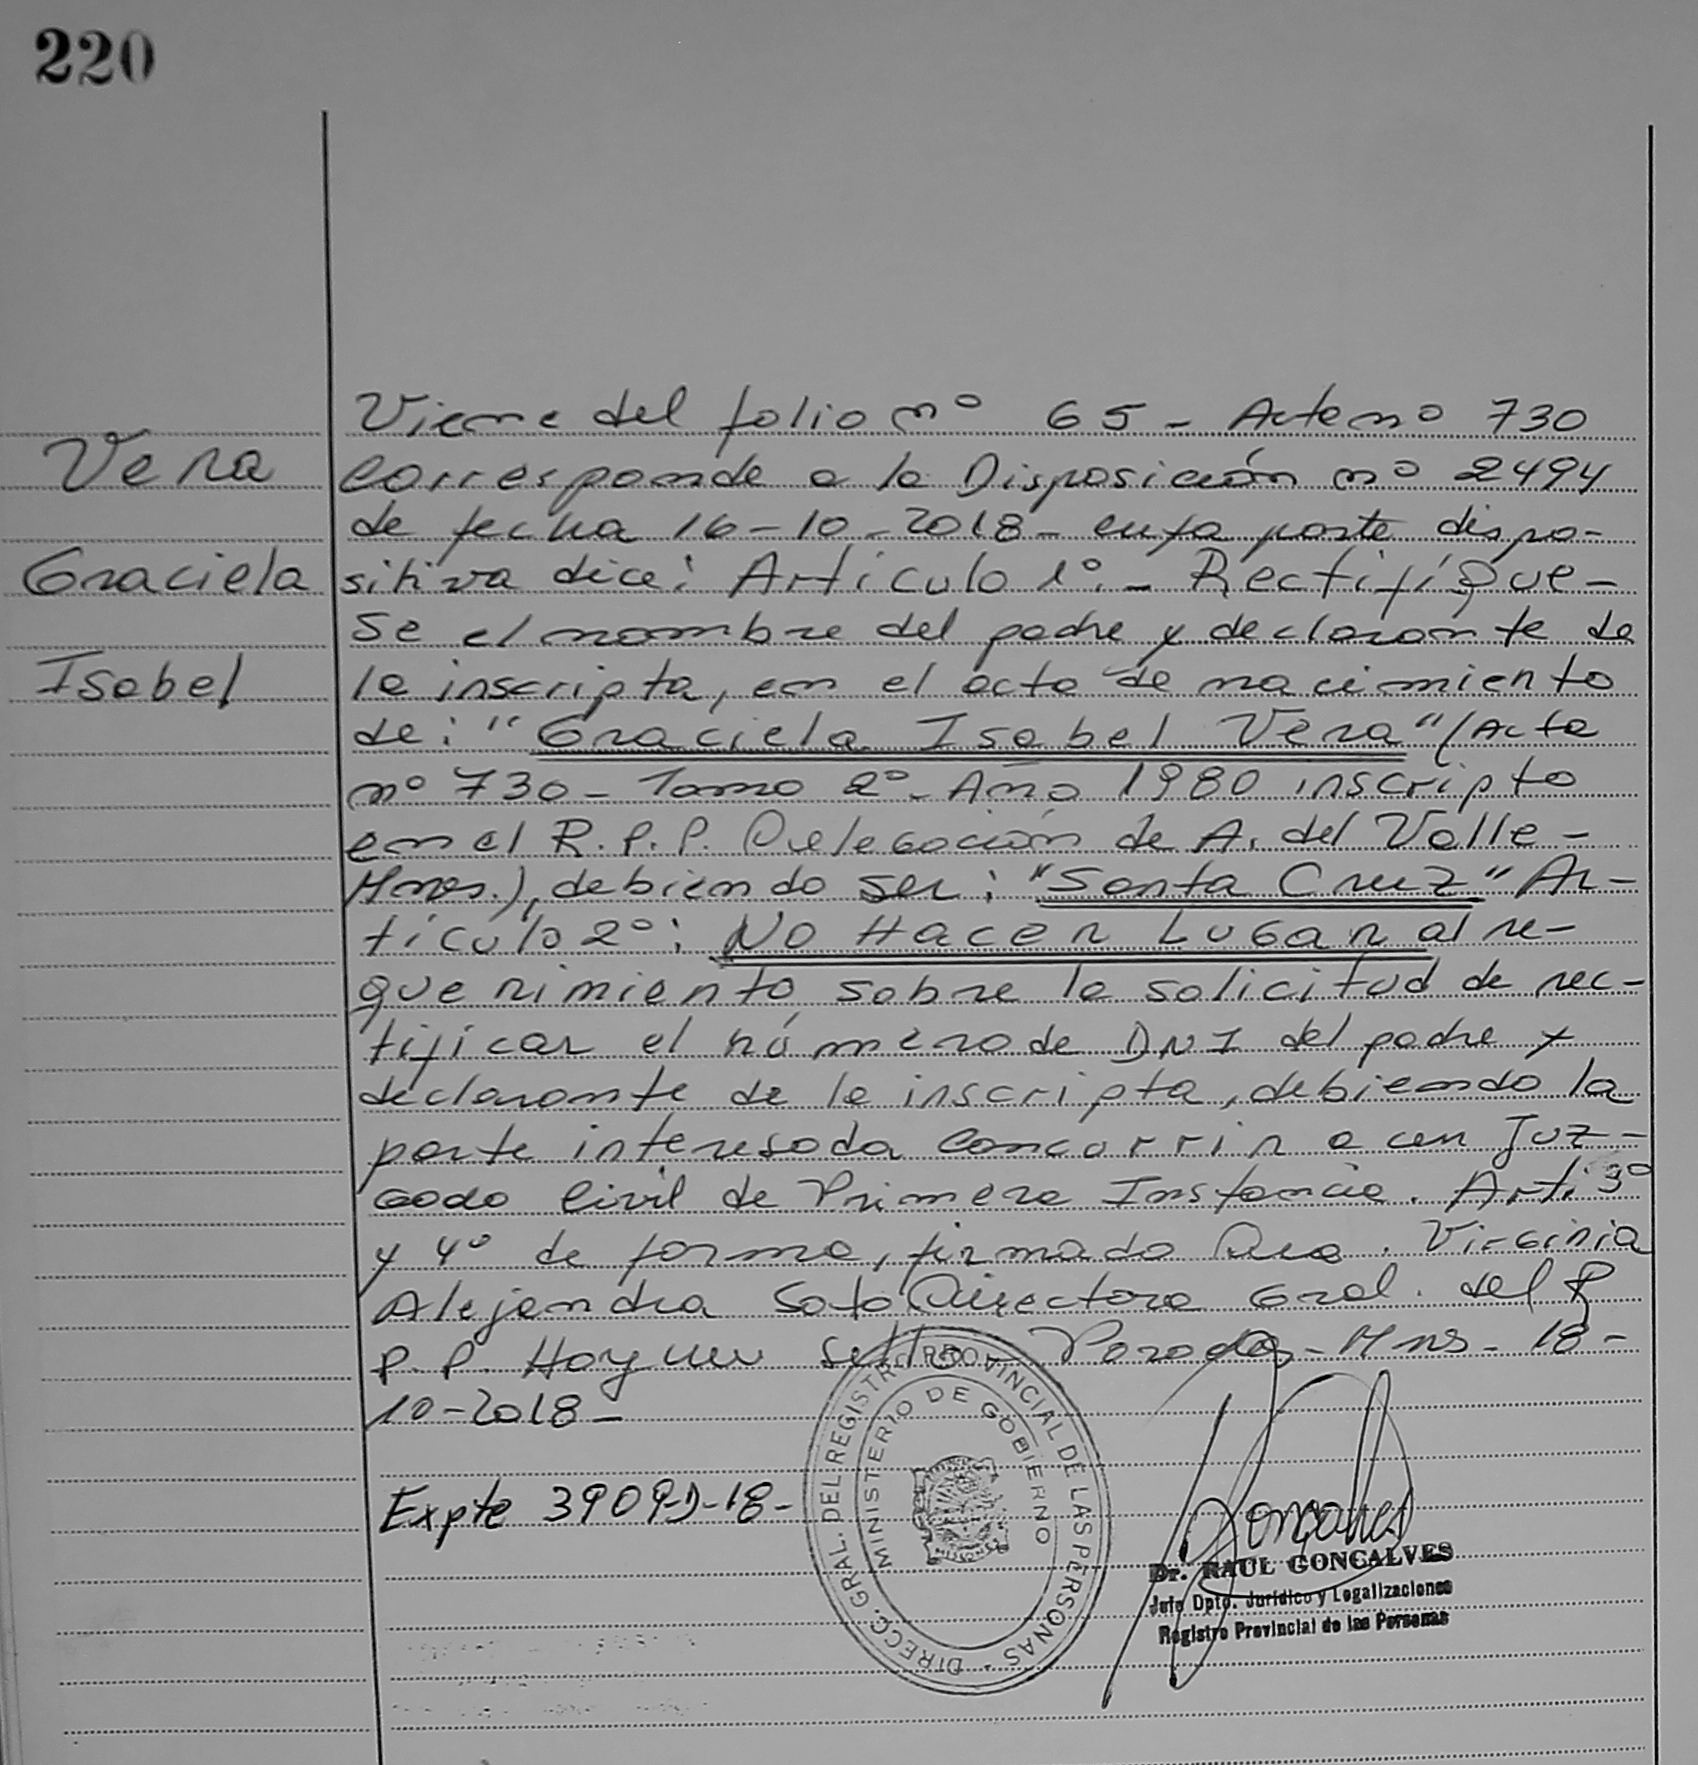 220
Vera
Graciela
Isabel
Viene del folio nº 65 - Acta nº 730
corresponde a la Disposición nº 2494
de fecha 16-10-2018- cuya parte dispo-
sitiva dice: Artículo 1º.- Rectifíque-
se el nombre del padre y declarante de
la inscripta, en el acta de nacimiento
de: "Graciela Isabel Vera" (Acta
nº 730- Tomo 2º- Año 1980 inscripto
en el R.P.P. Delegación de A. del Valle -
Mnes.), debiendo ser: "Santa Cruz" Ar-
tículo 2º: No Hacer Lugar al re-
querimiento sobre la solicitud de rec-
tificar el número de DNI del padre y
declarante de la inscripta, debiendo la
parte interesada concurrir a un Juz-
gado Civil de Primera Instancia. Art. 3º
y 4º de forma, firmado Dra. Virginia
Alejandra Soto Directora Gral. del R
P.P. Hay un sello Posadas - Mns - 18-
10-2018-
Expte 3909-D-18-
DIRECC. GRAL. DEL REGISTRO PROVINCIAL DE LAS PERSONAS -
MINISTERIO DE GOBIERNO
MISIONES
Goncalves
Dr. RAUL GONCALVES
Jefe Dpto. Jurídico y Legalizaciones
Registro Provincial de las Personas